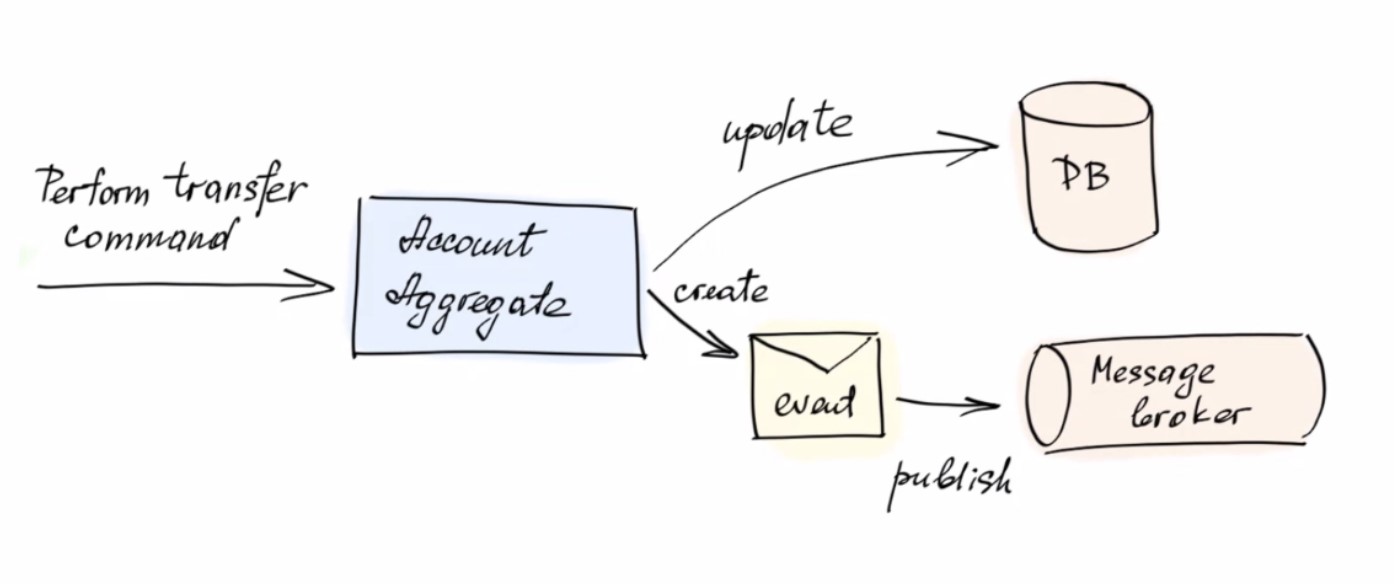 Perform transfer
command
Account
Aggregate
update
DB
create
event
publish
Message
broker